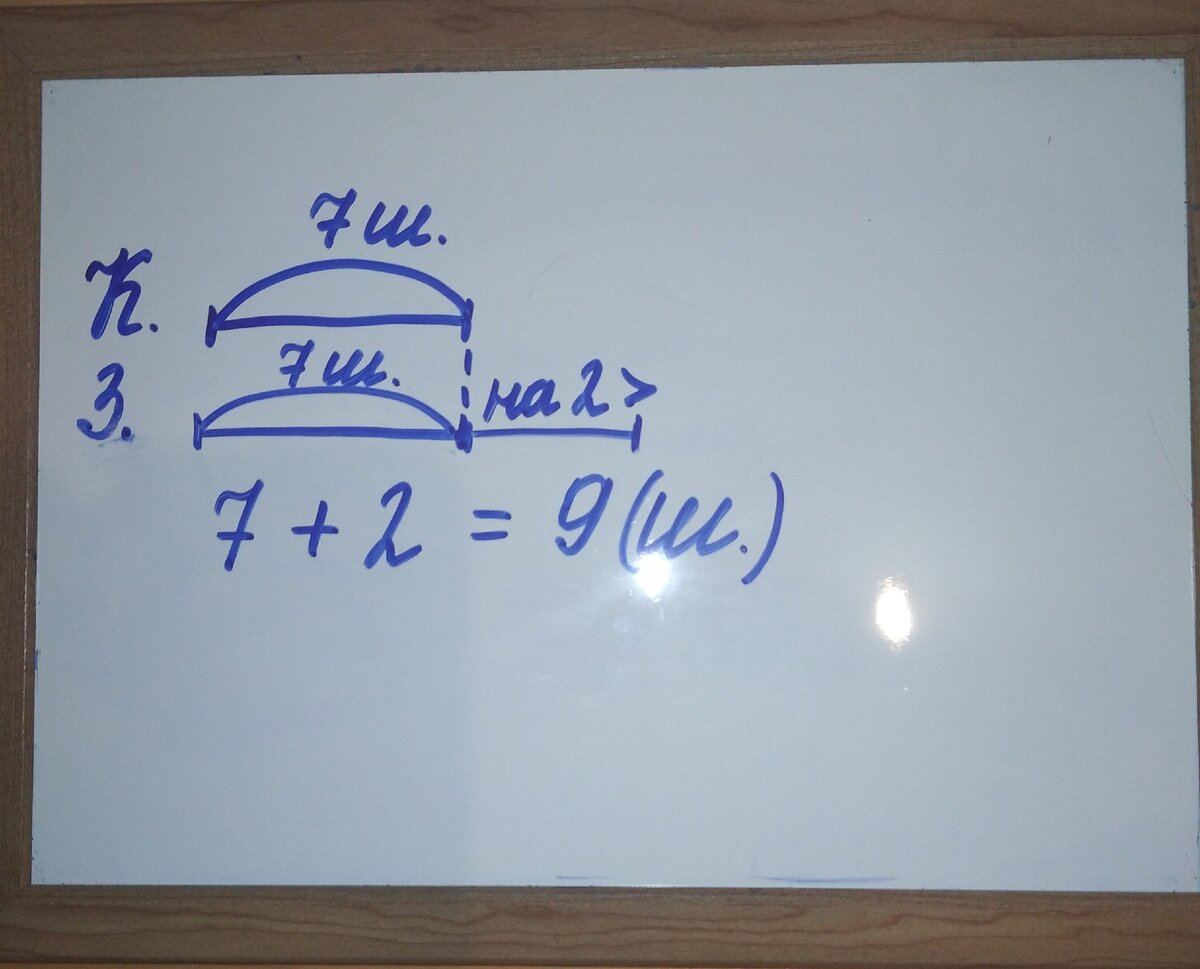 7 ш.
К.
7 ш.
З.
на 2 >
7 + 2 = 9 (ш.)